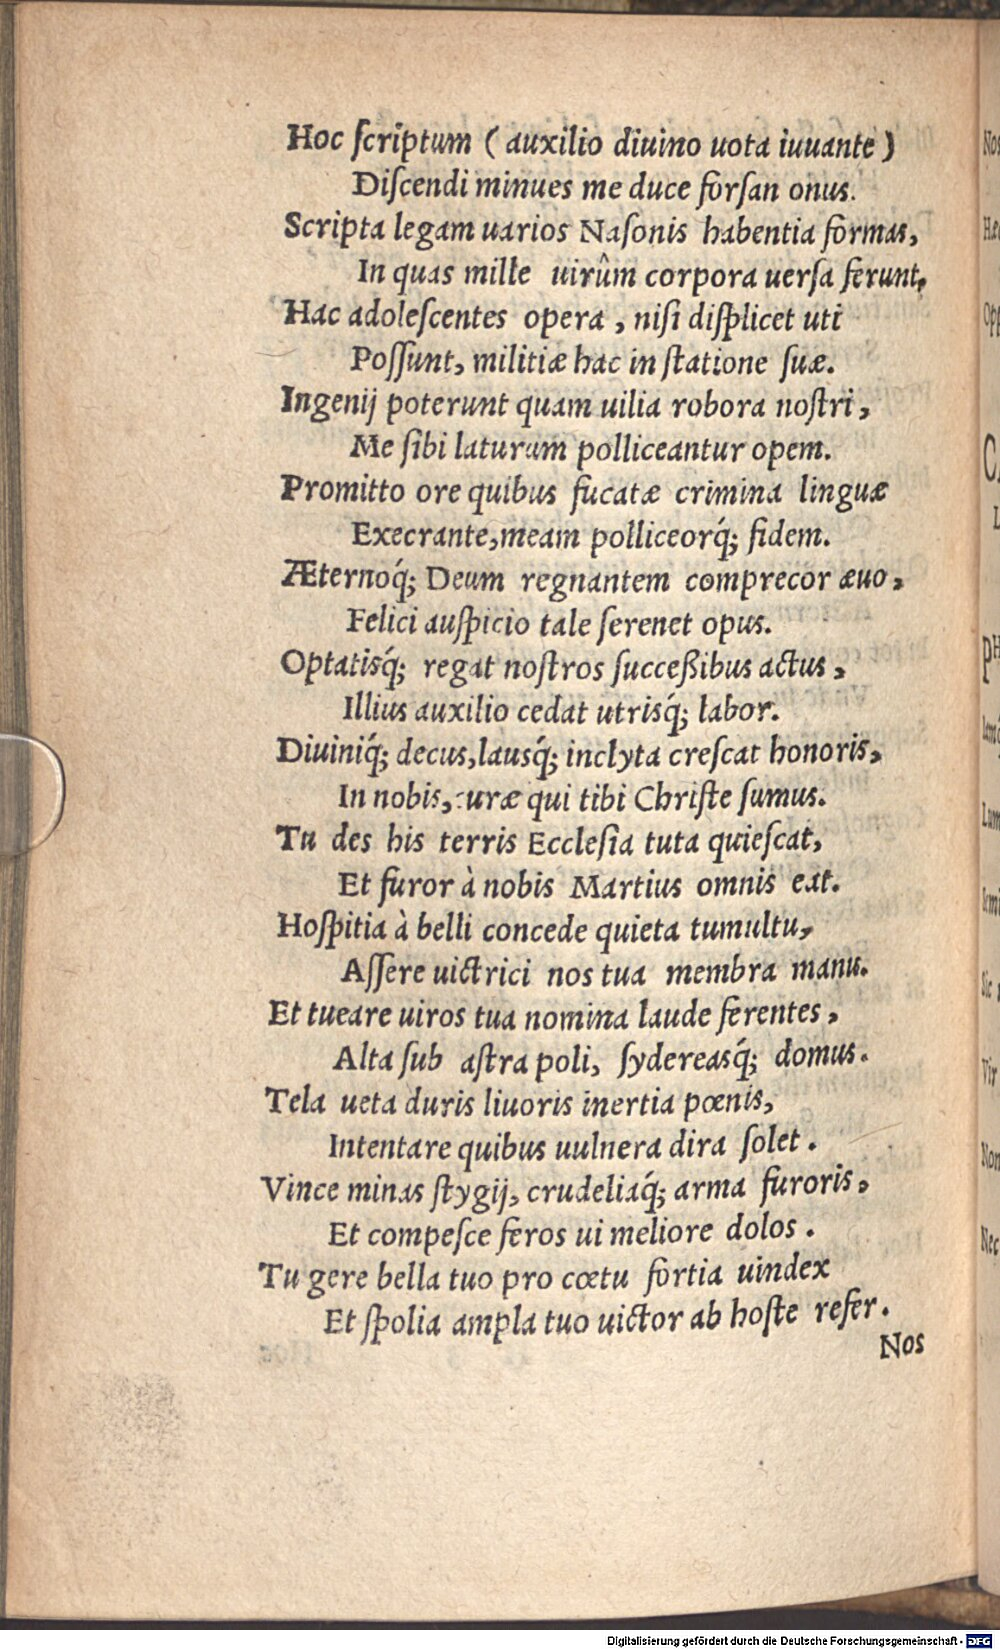 Hoc ſcriptum ( auxilio diuino uota iuuante )
Diſcendi minues me duce forſan onus.
Scripta legam uarios Naſonis habentia formas,
In quas mille uirûm corpora uerſa ferunt.
Hac adoleſcentes opera , niſi diſplicet uti
Poſſunt, militiæ hac in ſtatione ſuæ.
Ingenij poterunt quam uilia robora noſtri ,
Me ſibi laturum polliceantur opem.
Promitto ore quibus fucatæ crimina linguæ
Execrante, meam polliceorq́; fidem.
Æternoq́; Deum regnantem comprecor æuo ,
Felici auſpicio tale ſerenet opus.
Optatisq́; regat noſtros ſucceßibus actus ,
Illius auxilio cedat utrisq́; labor.
Diuiniq́; decus, lausq́; inclyta creſcat honoris,
In nobis, curæ qui tibi Chriſte ſumus.
Tu des his terris Eccleſia tuta quieſcat,
Et furor à nobis Martius omnis eat.
Hoſpitia à belli concede quieta tumultu,
Aſſere uictrici nos tua membra manu.
Et tueare uiros tua nomina laude ferentes ,
Alta ſub aſtra poli, ſydereasq́; domus.
Tela ueta duris liuoris inertia pœnis,
Intentare quibus uulnera dira ſolet .
Vince minas ſtygij, crudeliaq́; arma furoris,
Et compeſce feros ui meliore dolos .
Tu gere bella tuo pro cœtu fortia uindex
Et ſpolia ampla tuo uictor ab hoſte refer.
Nos
Digitalisierung gefördert durch die Deutsche Forschungsgemeinschaft - DFG